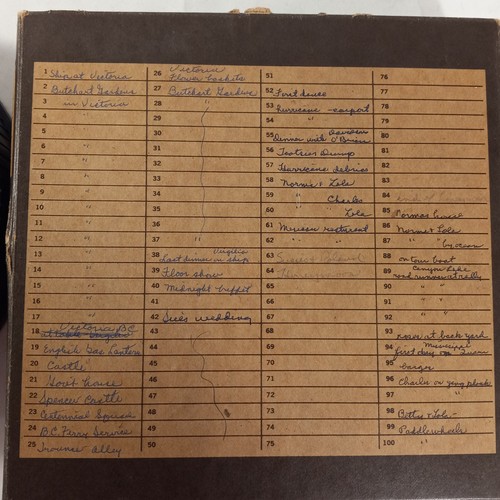 1 Ship at Victoria
2 Butchart Gardens
3 in Victoria
4 "
5 "
6 "
7 "
8 "
9 "
10 "
11 "
12 "
13 "
14 "
15 "
16 "
17 "
18 Victoria B.C.
19 English Gas Lanterns
20 Castle
21 House
22 Spencer Castle
23 Centennial Square
24 B.C. Ferry Service
25 Trounce Alley
26 Victoria
Flower baskets
27 Butchart Gardens
28 "
29
30
31
32
33
34
35
36
37 "
38 Last dinner on ship
39 Floor show
40 Midnight buffet
41
42 Sue's wedding
43
44
45
46
47
48
49
50
51
52
53 Hurricane - carport
54 " "
55 Dinner with O'Brien
56 Dump
57 Hurricane debries
58 Norm & Lola
59 " Charles
60 " Lola
61 Mexican resturant
62 " "
63
64
65
66
67
68
69
70
71
72
73
74
75
76
77
78
79
80
81
82
83
84
85 Normas house
86 Norm & Lola
87 " " by ocean
88 on tour boat
89 Canyon Lake
road runner rally
90 " "
91 " "
92 " "
93 roses at back yard
94 first day on
95 barges
96 Charles on
97 "
98 Betty & Lola
99 Paddlewheels
100 "